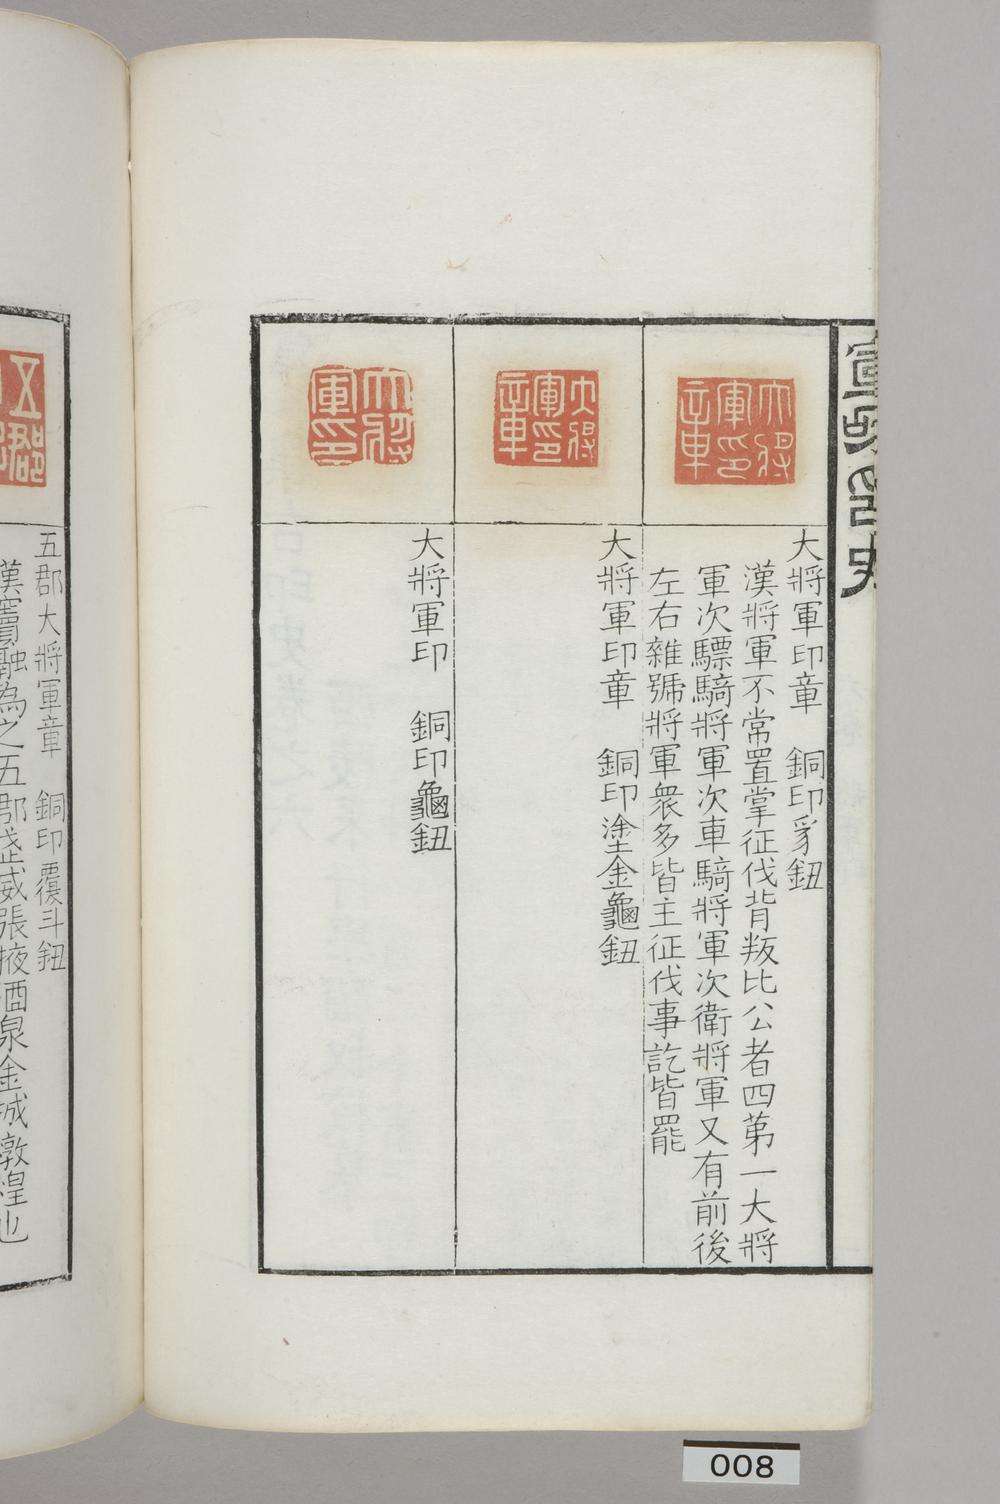 宣和印史
大將軍印章
大將軍印章　銅印豸鈕
漢將軍不常置掌征伐背叛比公者四第一大將
軍次驃騎將軍次車騎將軍次衛將軍又有前後
左右雜號將軍衆多皆主征伐事訖皆罷
大將軍印章
大將軍印章　銅印塗金龜鈕
大將軍印
大將軍印　銅印龜鈕
五郡
五郡大將軍章　銅印覆斗鈕
漢竇融為之五郡武威張掖酒泉金城敦煌也
008